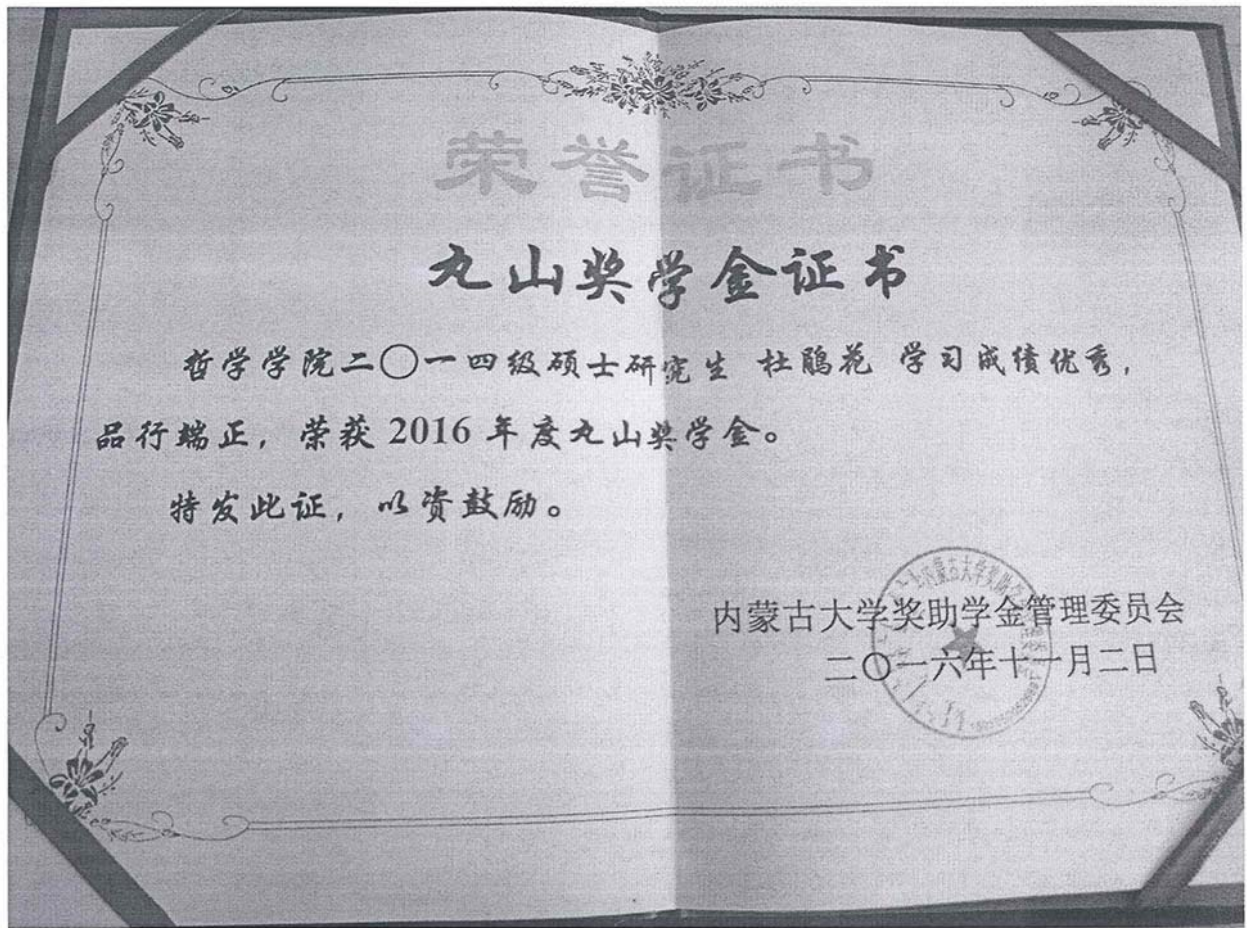 荣誉证书
丸山奖学金证书
哲学学院二〇一四级硕士研究生 杜鹃花 学习成绩优秀，
品行端正，荣获 2016 年度丸山奖学金。
特发此证，以资鼓励。
内蒙古大学奖助学金管理委员会
二〇一六年十一月二日